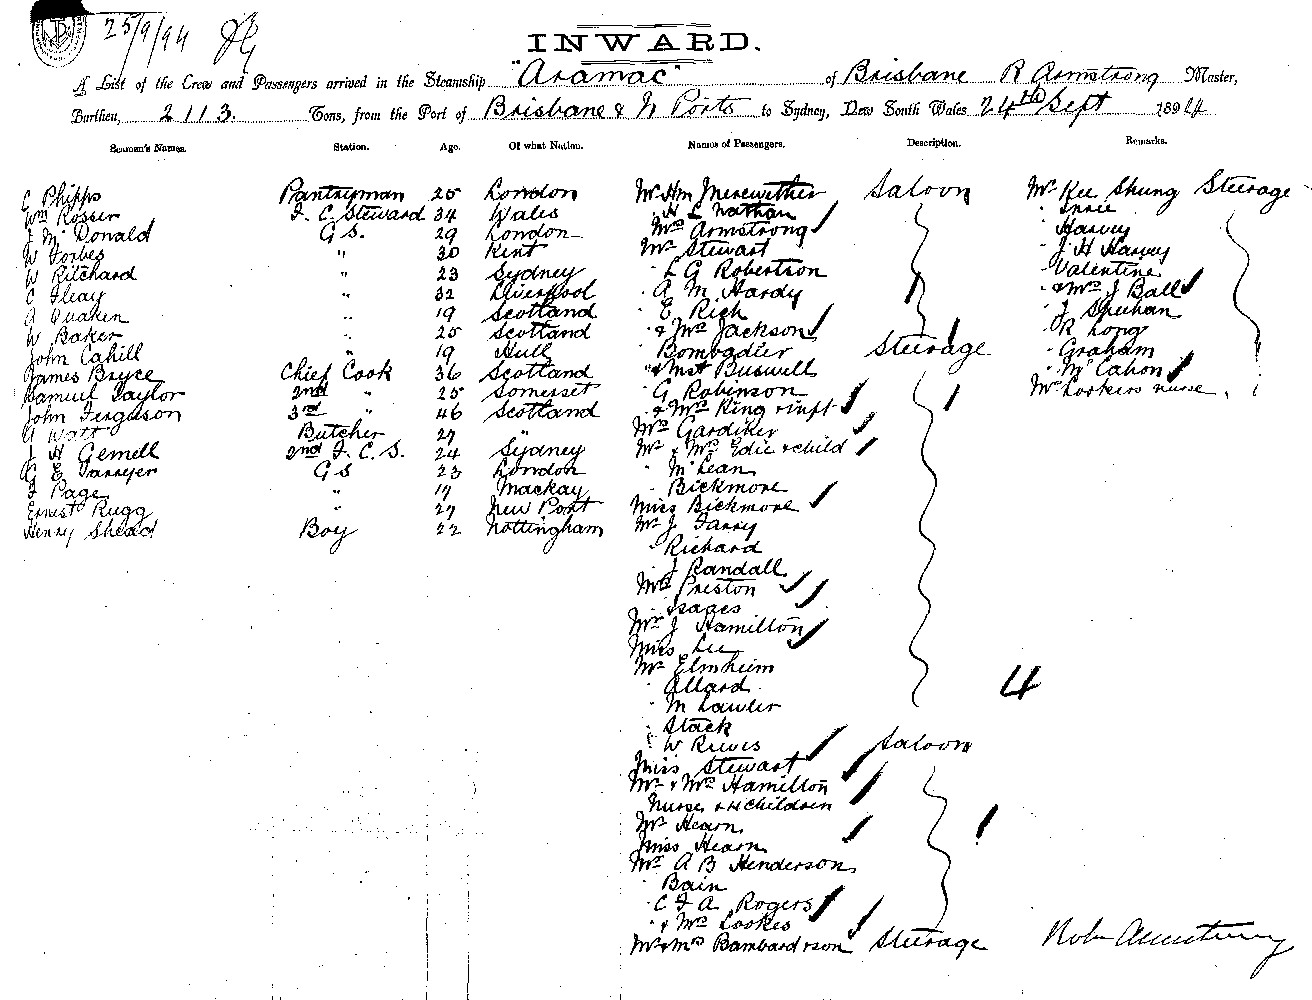 25/9/94
INWARD.
A List of the Crew and Passengers arrived in the Steamship "Aramac" of Brisbane R Armstrong Master,
Burthen, 2113. Tons, from the Port of Brisbane & N Ports to Sydney, New South Wales 24th Sept 1894
Seamen's Names. Station. Age. Of what Nation. Names of Passengers. Description. Remarks.
C Phipps Pantryman 25 London Mr Hm Merewether Saloon Mr Kee Shung Steerage
Wm Rosser F. C. Steward 34 Wales " H L Nathan " Innie
J McDonald G S. 29 London Mrs Armstrong " Harvey
W Forbes " 30 Kent Mr Stewart " J H Harvey
W Ritchard " 23 Sydney " L G Robertson " Valentine
C Fleay " 32 Liverpool " A M Hardy " & Mrs J Ball
A Quaken " 19 Scotland " E Rich " J Sheehan
W Baker " 25 Scotland " & Mrs Jackson " R Long
John Cahill " 19 Hull " Bombadier Steerage " Graham
James Bryce Chief Cook 36 Scotland " & Mst Buswell " McCahon
Samuel Taylor 2nd " 25 Somerset " G Robinson Mrs Lookers nurse
John Ferguson 3rd " 46 Scotland " & Mrs King & inft
A Watt Butcher 27 " Mrs Gardiker
J H Gemell 2nd F. C. S. 24 Sydney Mr & Mrs Edie & child
G E Tarryer G S 23 London " McLean
F Page " 19 Mackay " Bickmore
Ernest Rugg " 27 New Port Miss Bickmore
Henry Shead Boy 22 Nottingham Mr J Farry
" Richard
" J Randall
Mrs Preston
" Isaacs
Mr J Hamilton
Miss Lee
Mr Elmheim
" Allard
" M Lawler
" Stack
" W Reeves Saloon
Miss Stewart
Mr & Mrs Hamilton
Nurse & 4 children
Mr Hearn
Miss Hearn
Mr A B Henderson
" Bain
" C F A Rogers
" & Mrs Lookes
Mr & Mrs Bambardrson Steerage
4
Robt Armstrong